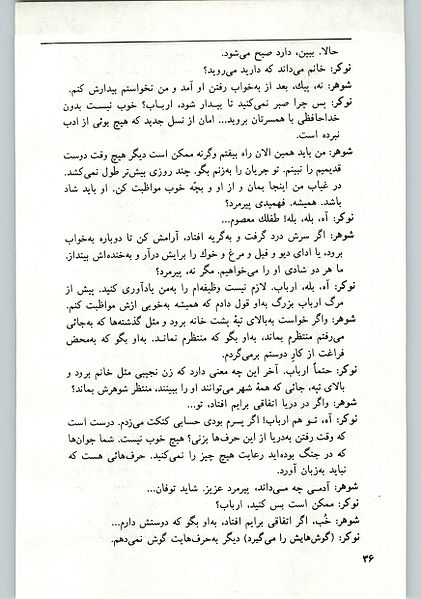 حالا. ببین، دارد صبح می‌شود.
نوکر: خانم می‌داند که دارید می‌روید؟
شوهر: نه، پیك، بعد از به‌خواب رفتن او آمد و من نخواستم بیدارش کنم.
نوکر: پس چرا صبر نمی‌کنید تا بیدار شود، ارباب؟ خوب نیست بدون
خداحافظی با همسرتان بروید... امان از نسل جدید که هیچ بوئی از ادب
نبرده است.
شوهر: من باید همین الان راه بیفتم وگرنه ممکن است دیگر هیچ وقت دوست
قدیمیم را نبینم. تو جریان را به‌زنم بگو. چند روزی بیش‌تر طول نمی‌کشد.
در غیاب من اینجا بمان و از او و بچّه خوب مواظبت کن. او باید شاد
باشد. همیشه. فهمیدی پیرمرد؟
نوکر: آه، بله، بله! طفلك معصوم...
شوهر: اگر سرش درد گرفت و به‌گریه افتاد، آرامش کن تا دوباره به‌خواب
برود، یا ادای دیو و فیل و مرغ و خوك را برایش درآر و به‌خنده‌اش بینداز.
ما هر دو شادی او را می‌خواهیم. مگر نه، پیرمرد؟
نوکر: آه، بله، ارباب. لازم نیست وظیفه‌ام را به‌من یادآوری کنید. پیش از
مرگ ارباب بزرگ به‌او قول دادم که همیشه به‌خوبی ازش مواظبت کنم.
شوهر: واگر خواست به‌بالای تپهٔ پشت خانه برود و مثل گذشته‌ها که به‌جائی
می‌رفتم منتظرم بماند، به‌او بگو که منتظرم نمانـد. به‌او بگو که به‌محض
فراغت از کارِ دوستم برمی‌گردم.
نوکر: حتماً ارباب. آخر این چه معنی دارد که زن نجیبی مثل خانم برود و
بالای تپه، جائی که همهٔ شهر می‌توانند او را ببینند، منتظر شوهرش بماند؟
شوهر: واگر در دریا اتفاقی برایم افتاد، تو...
نوکر: آه، تـو هم ارباب! اگر پسرم بودی حسابی کتکت می‌زدم. درست است
که وقت رفتن به‌دریا از این حرف‌ها بزنی؟ هیچ خوب نیست. شما جوان‌ها
که در جنگ بوده‌اید رعایت هیچ چیز را نمی‌کنید. حرف‌هائی هست که
نباید به‌زبان آورد.
شوهر: آدمـی چه مـی‌داند، پیرمرد عزیز. شاید توفان...
نوکر: ممکن است بس کنید، ارباب؟
شوهر: خُب، اگر اتفاقی برایم افتاد، به‌او بگو که دوستش دارم...
نوکر: (گوش‌هایش را می‌گیرد) دیگر به‌حرف‌هایت گوش نمی‌دهم.
۳۶